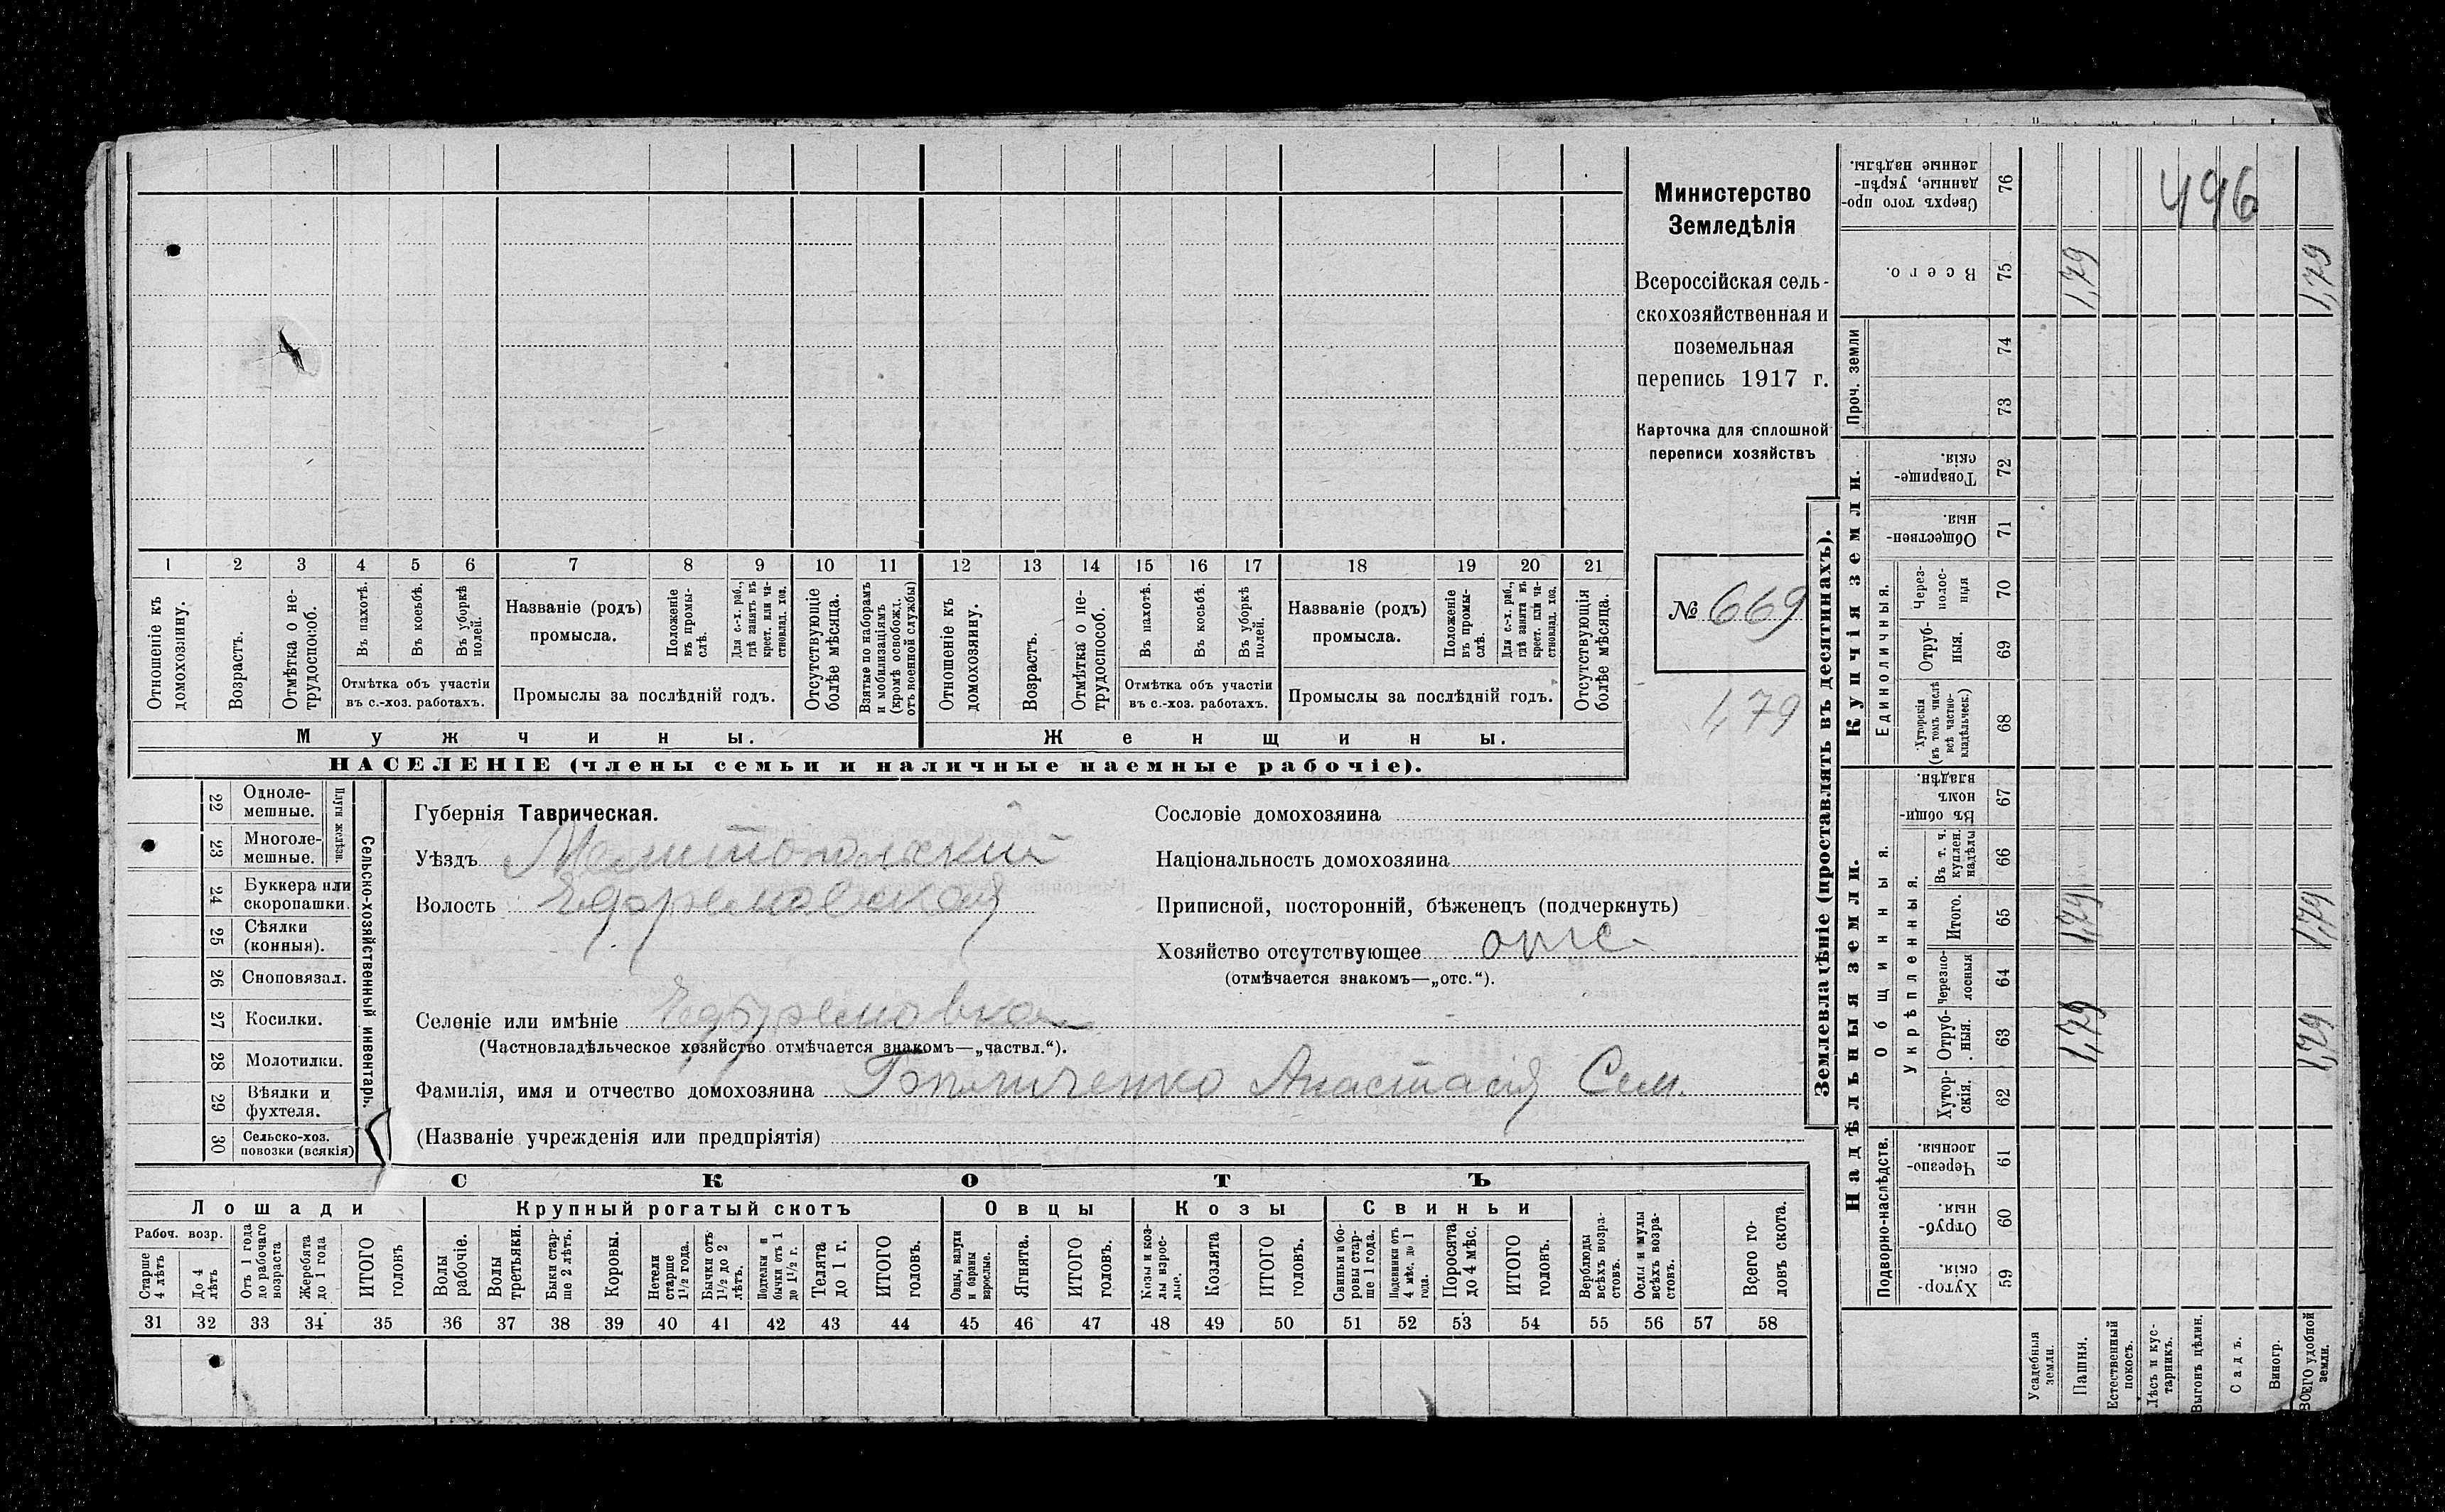 496
Министерство
Земледѣлія
Всероссійская сель-
скохозяйственная и
поземельная
перепись 1917 г.
Карточка для сплошной
переписи хозяйствъ
№ 669
1,79
1 2 3 4 5 6 7 8 9 10 11 12 13 14 15 16 17 18 19 20 21
Отношеніе къ домохозяину.
Возрастъ.
Отмѣтка о не-трудоспособ.
Въ пахотѣ.
Въ косьбѣ.
Въ уборкѣ полей.
Отмѣтка объ участіи
въ с.-хоз. работахъ.
Названіе (родъ)
промысла.
Положеніе въ промы-слѣ.
Для с.-х. раб., гдѣ занятъ въ крест. или ча-стновлад. хоз.
Промыслы за послѣдній годъ.
Отсутствующіе болѣе мѣсяца.
Взятые по наборамъ и мобилизаціямъ (кромѣ освобожд. отъ военной службы)
Отношеніе къ домохозяину.
Возрастъ.
Отмѣтка о не-трудоспособ.
Въ пахотѣ.
Въ косьбѣ.
Въ уборкѣ полей.
Отмѣтка объ участіи
въ с.-хоз. работахъ.
Названіе (родъ)
промысла.
Положеніе въ промы-слѣ.
Для с.-х. раб., гдѣ занята въ крест. или ча-стновлад. хоз.
Промыслы за послѣдній годъ.
Отсутствующія болѣе мѣсяца.
Мужчины. Женщины.
НАСЕЛЕНІЕ (члены семьи и наличные наемные рабочіе).
22 Одноле-мешные.
23 Многоле-мешные.
Плуги желѣзн.
24 Буккера или скоропашки.
25 Сѣялки (конныя).
26 Сноповязал.
27 Косилки.
28 Молотилки.
29 Вѣялки и фухтеля.
30 Сельско-хоз. повозки (всякія)
Сельско-хозяйственный инвентарь.
Губернія Таврическая.
Уѣздъ Мелитопольский
Волость Ефремовская
Селеніе или имѣніе Ефремовка
(Частновладѣльческое хозяйство отмѣчается знакомъ—„частвл.“).
Фамилія, имя и отчество домохозяина Анастасія Сем.
(Названіе учрежденія или предпріятія)
Сословіе домохозяина
Національность домохозяина
Приписной, посторонній, бѣженецъ (подчеркнуть)
Хозяйство отсутствующее отс.
(отмѣчается знакомъ—„отс.“).
СКОТЪ
Лошади Крупный рогатый скотъ Овцы Козы Свиньи
Рабоч. возр.
Старше 4 лѣтъ
До 4 лѣтъ
Отъ 1 года до рабочаго возраста
Жеребята до 1 года
ИТОГО головъ
Волы рабочіе.
Волы третьяки.
Быки стар-ше 2 лѣтъ.
Коровы.
Нетели старше 1½ года.
Бычки отъ 1½ до 2 лѣтъ.
Подтелки и бычки отъ 1 до 1½ г.
Телята до 1 г.
ИТОГО головъ.
Овцы, валухи и бараны взрослые.
Ягнята.
ИТОГО головъ.
Козы и коз-лы взрос-лые.
Козлята
ИТОГО головъ.
Свиньи и бо-ровы стар-ше 1 года.
Подсвинки отъ 4 мѣс. до 1 года.
Поросята до 4 мѣс.
ИТОГО головъ.
Верблюды всѣхъ возра-стовъ.
Ослы и мулы всѣхъ возра-стовъ.
Всего го-ловъ скота.
31 32 33 34 35 36 37 38 39 40 41 42 43 44 45 46 47 48 49 50 51 52 53 54 55 56 57 58
Землевладѣніе (проставлять въ десятинахъ).
Сверхъ того про-данные, укрѣп-ленные надѣлы. 76
Всего. 75 1,79 1,79
Проч. земли 74
73
Купчія земли.
Товарище-скія. 72
Обществен-ныя. 71
Единоличныя.
Через-полос-ныя 70
Отруб-ныя. 69
Хуторскія (въ томъ числѣ всѣ частно-владѣльческ.) 68
Надѣльныя земли.
Общинныя.
Въ общи-номъ владѣн. 67
Укрѣпленныя.
Въ т. ч. куплен. надѣлы 66
Итого. 65 1,79 1,79
Черезпо-лосныя 64
Отруб-ныя. 63 1,79 1,79
Хутор-скія. 62
Подворно-наслѣдств.
Черезпо-лосныя. 61
Отруб-ныя. 60
Хутор-скія. 59
Усадебныя земли.
Пашня.
Естественный покосъ.
Лѣсъ и кус-тарникъ.
Выгонъ цѣлин.
Садъ.
Виногр.
ВСЕГО удобной земли.